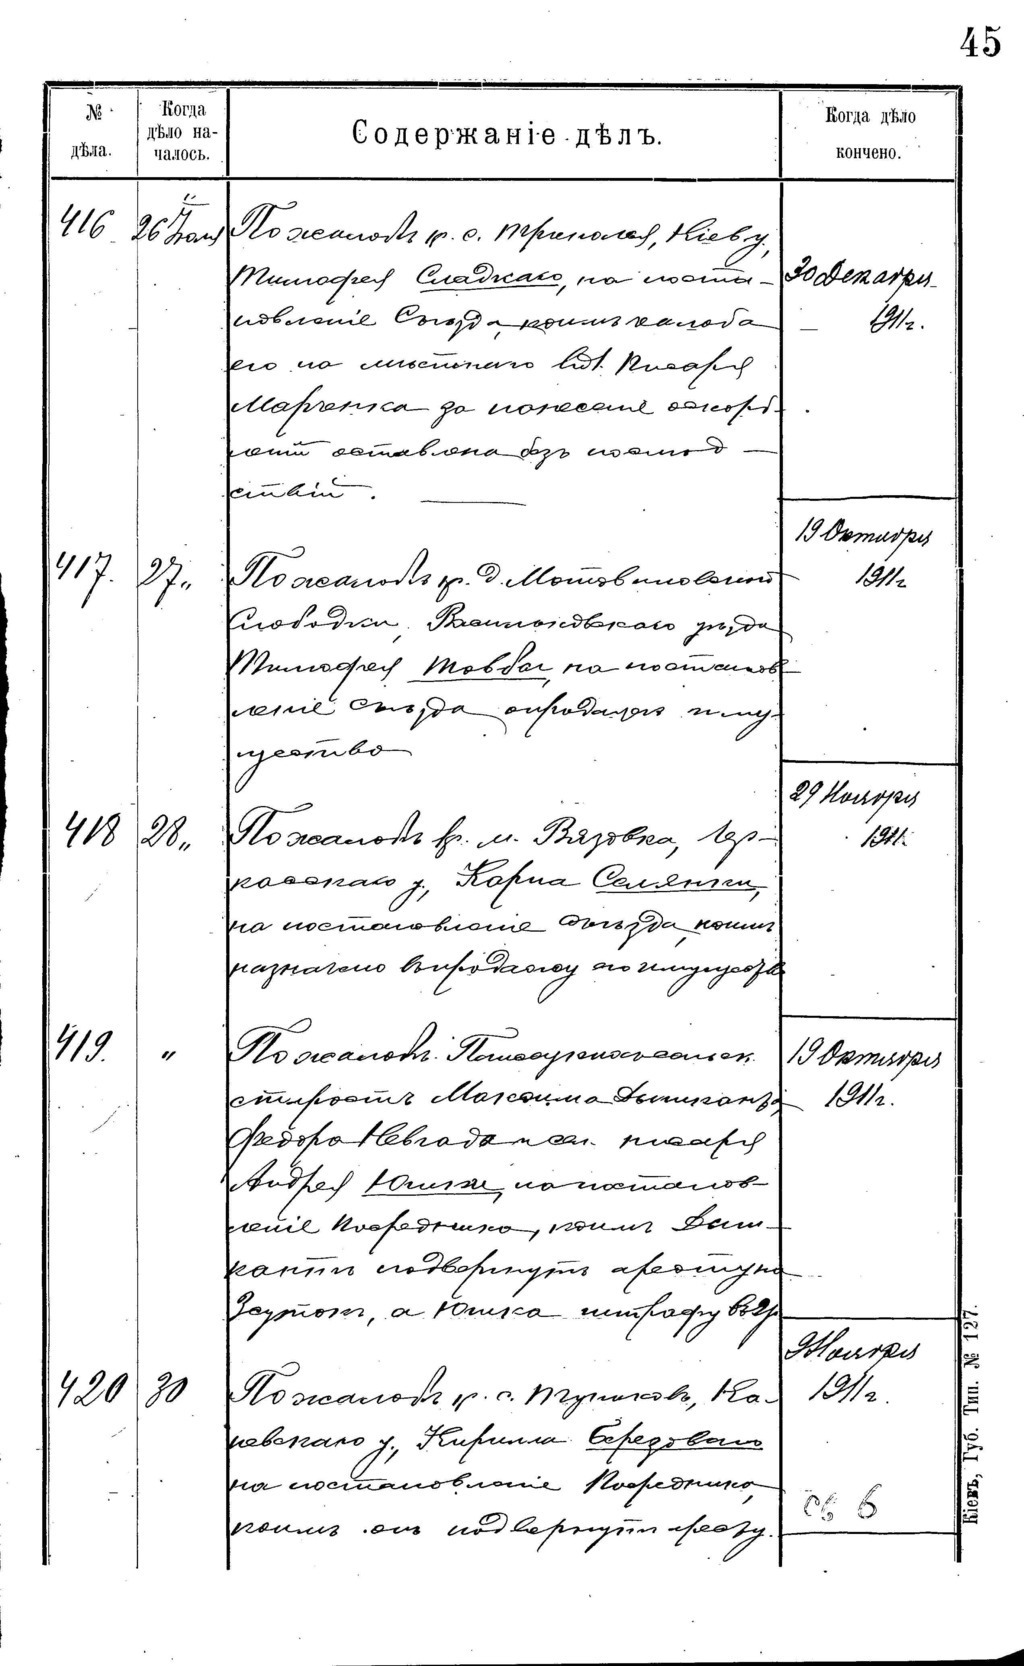 45
№ дѣла.
Когда дѣло началось.
Содержаніе дѣлъ.
Когда дѣло кончено.
416
26
По жалобѣ кр. с. Триполья, Кіев. у.,
Тимофея Сладкаго, на поста-
новленіе Съѣзда, коимъ жалоба
его на мѣстнаго вол. Писаря
Марченка за нанесеніе оскорб-
оставлена безъ послѣд-
ствій.
30 Декабря
1911г.
417.
27 „
По жалобѣ кр. д. Мотовиловской
Слободки, Васильковскаго уѣзда
Тимофея Товбы, на постанов
леніе Съѣзда о продажѣ иму-
щества
19 Октября
1911г
418
28 „
По жалобѣ кр. м. Вязовка, Чер-
касскаго у., Карпа
на постановленіе Съѣзда, коимъ
назначено въ продажу его имущество
29 Ноября
1911г.
419.
„
По жалобѣ
старостъ Максима
Федора и сел. писаря
Андрея Юшки, на постанов-
леніе Посредника, коимъ
подвергнутъ аресту на
3 сутокъ, а Юшка штрафу въ 2р
19 Октября
1911г.
420
30
По жалобѣ кр. с. Ка-
невскаго у., Кирилла Березоваго
на постановленіе Посредника,
коимъ онъ подвергнутъ аресту.
9 Ноября
1911г.
Кіевъ, Губ. Тип. № 127.